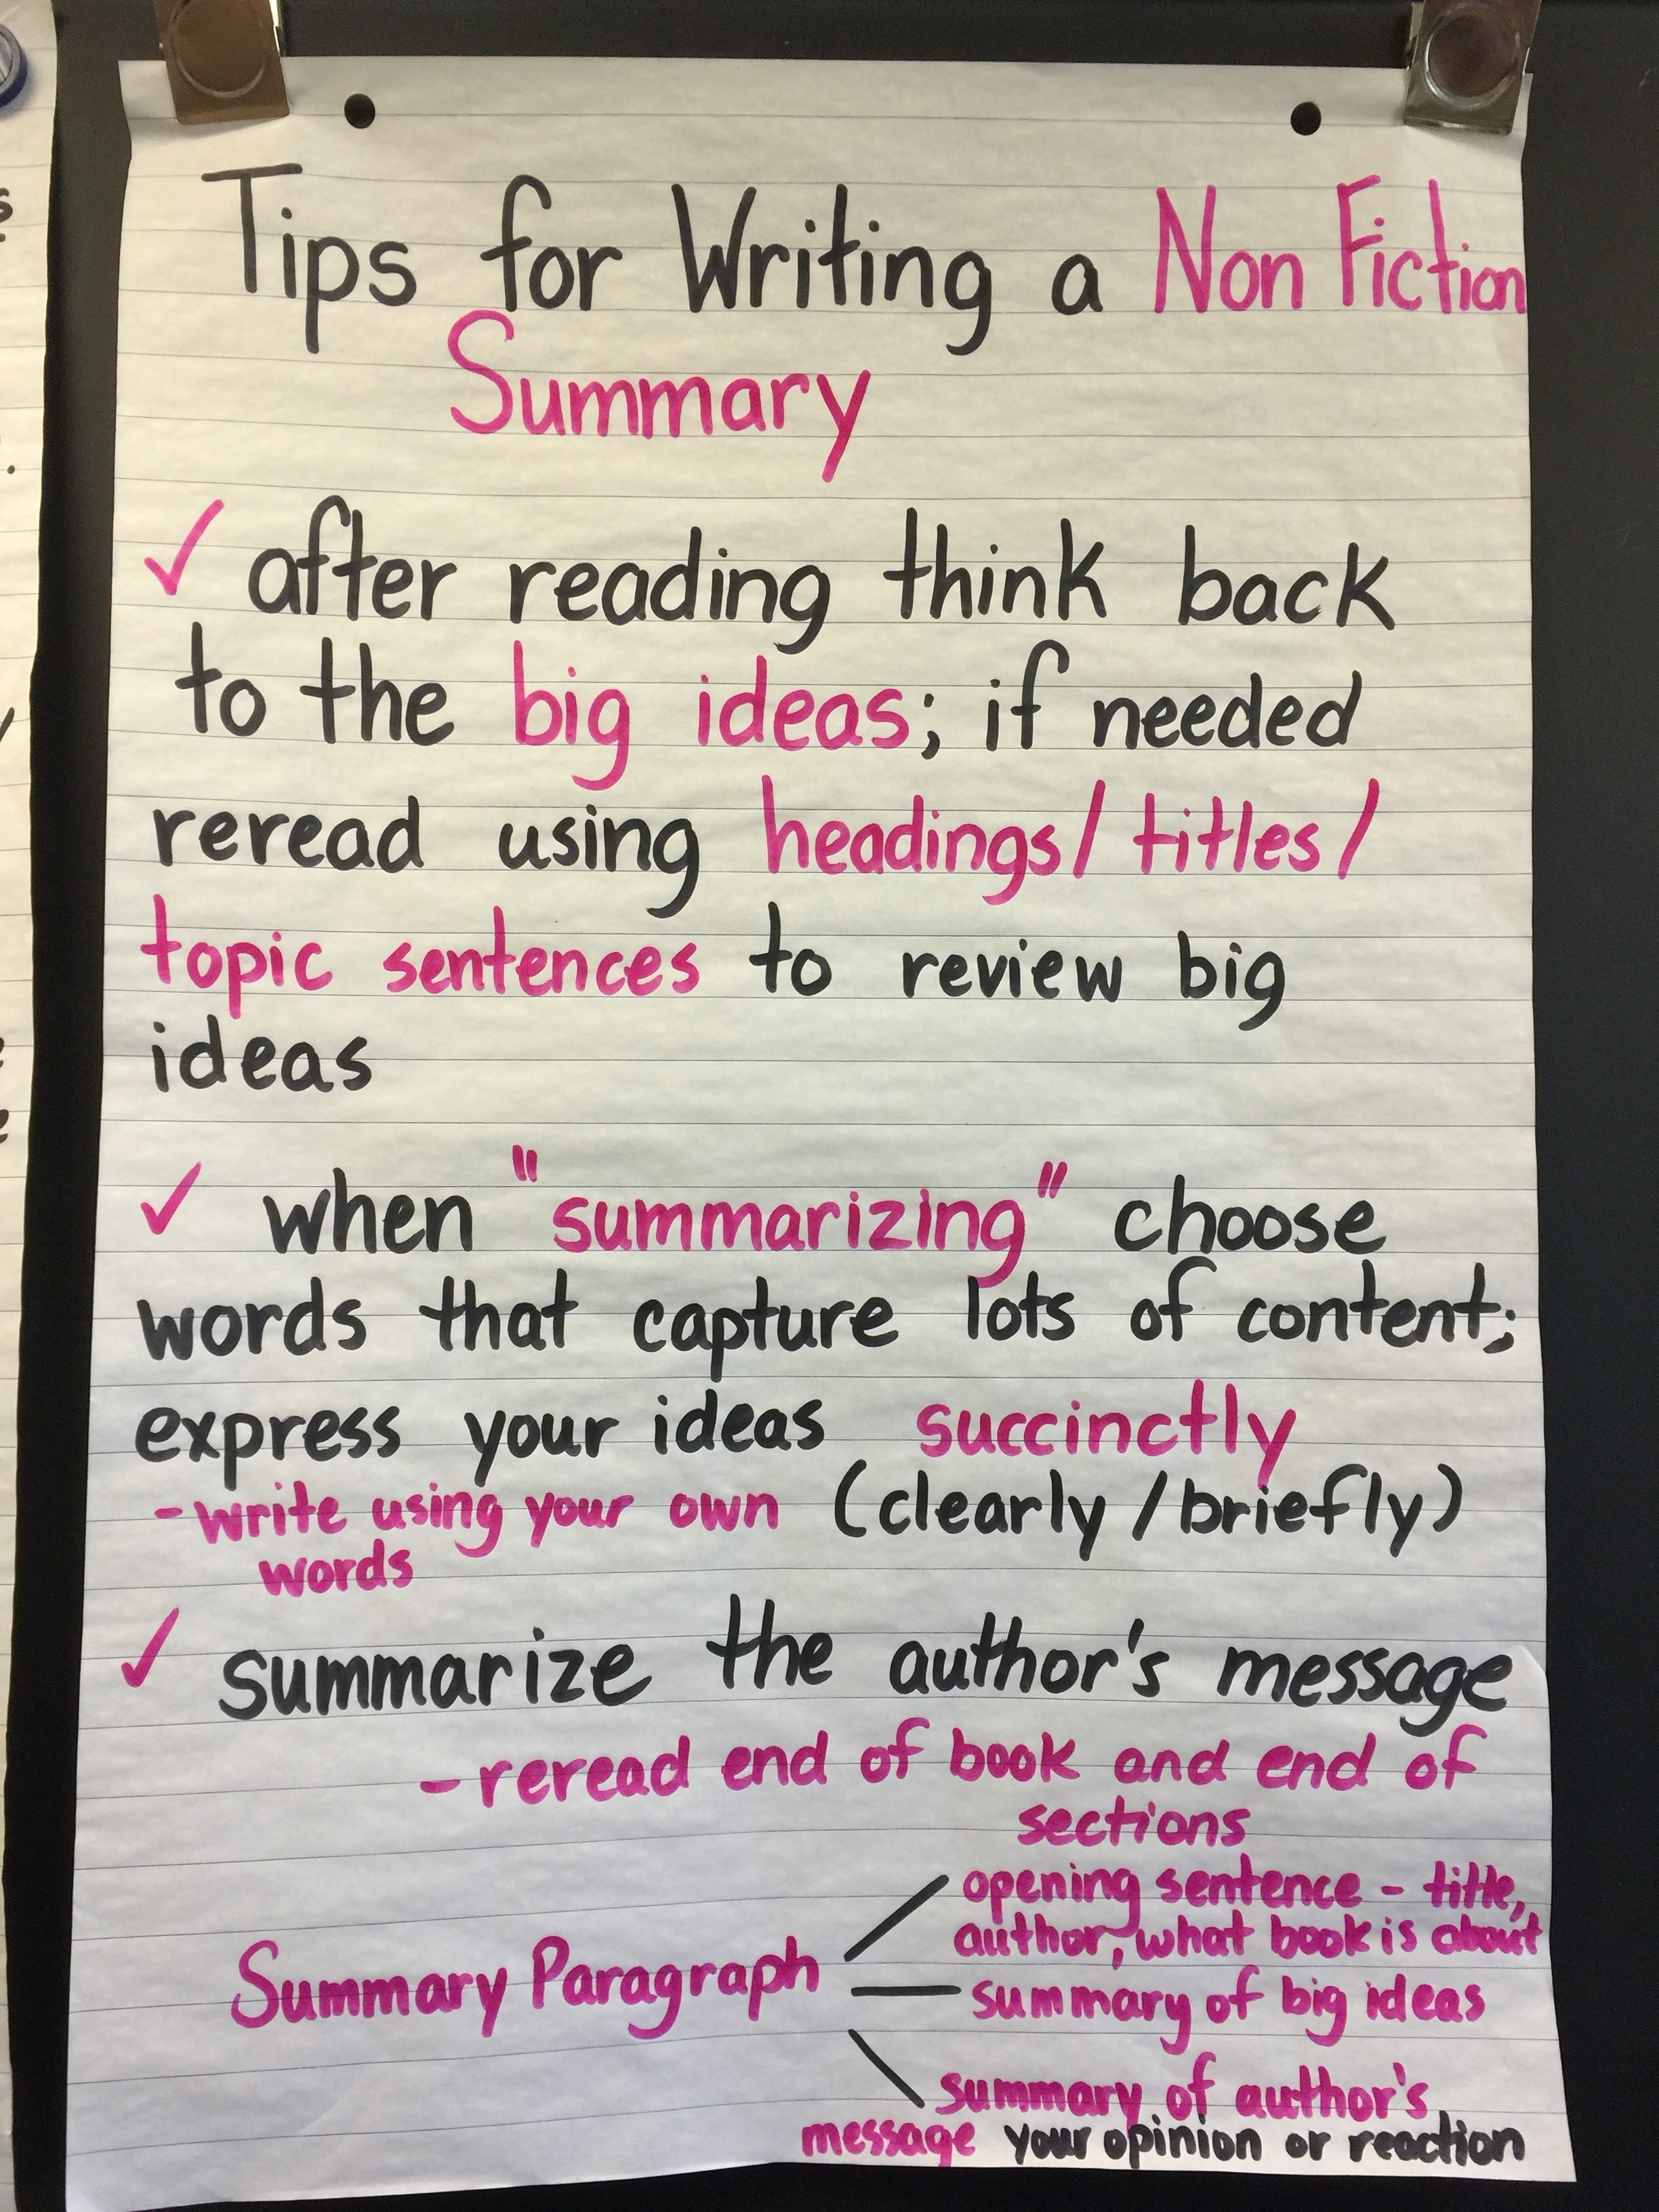 Tips for Writing a Non Fiction
Summary
✓ after reading think back
to the big ideas; if needed
reread using headings/titles/
topic sentences to review big
ideas
✓ when "summarizing" choose
words that capture lots of content;
express your ideas succinctly
(clearly/briefly)
- write using your own
words
✓ summarize the author's message
- reread end of book and end of
sections
Summary Paragraph
opening sentence - title,
author, what book is about
summary of big ideas
summary of author's
message your opinion or reaction